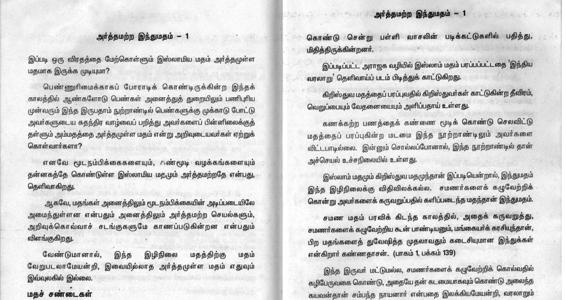 அர்த்தமற்ற இந்துமதம் – 1
இப்படி ஒரு விரதத்தை மேற்கொள்ளும் இஸ்லாமிய மதம் அர்த்தமுள்ள
மதமாக இருக்க முடியுமா?
பெண்ணுரிமைக்காகப் போராடிக் கொண்டிருக்கின்ற இந்தக்
காலத்தில் ஆண்களோடு பெண்கள் அனைத்துத் துறையிலும் பணிபுரிய
முன்வரும் இந்த இருபதாம் நூற்றாண்டில் பெண்களுக்கு முக்காடு போட்டு
அவர்களுடைய சுதந்திர வாழ்வைப் பறித்து அவர்களைப் பின்னிலைக்குத்
தள்ளும் அம்மதத்தை அர்த்தமுள்ள மதம் என்று அறிவுடையவர்கள் ஏற்றுக்
கொள்வார்களா?
எனவே மூடநம்பிக்கைகளையும், கண்மூடி வழக்கங்களையும்
தன்னகத்தே கொண்டுள்ள இஸ்லாமிய மதமும் அர்த்தமற்றதே என்பது,
தெளிவாகிறது.
ஆகவே, மதங்கள் அனைத்திலும் மூடநம்பிக்கையின் அடிப்படையிலே
அமைந்துள்ளன என்பதும் அனைத்திலும் அர்த்தமற்ற செயல்களும்,
அறிவுக்கொவ்வாச் சடங்குகளுமே காணப்படுகின்றன என்பதும்
விளங்குகிறது.
வேண்டுமானால், இந்த இழிநிலை மதத்திற்கு மதம்
வேறுபடலாமேயன்றி, இவையில்லாத அர்த்தமுள்ள மதம் எதுவும்
இவ்வுலகில் இல்லை.
மதச் சண்டைகள்
அர்த்தமற்ற இந்துமதம் – 1
கொண்டு சென்று பள்ளி வாசலின் படிக்கட்டுகளில் பதித்து,
மிதித்திருக்கின்றனர்.
இப்படிப்பட்ட அராஜக வழியில் இஸ்லாம் மதம் பரப்பப்பட்டதை 'இந்திய
வரலாறு' தெளிவாய்ப் படம் பிடித்துக் காட்டுகிறது.
கிறிஸ்துவ மதத்தைப் பரப்புவதில் கிறிஸ்துவர்கள் காட்டுகின்ற தீவிரம்,
வெறுப்பையும் வேதனையையும் அளிப்பதாய் உள்ளது.
கணக்கற்ற பணத்தைக் கண்ணை மூடிக் கொண்டு செலவிட்டு
மதத்தைப் பரப்புகின்ற மடமை இந்த நூற்றாண்டிலும் அவர்களை
விட்டபாடில்லை. இன்னும் சொல்லப்போனால், இந்த நூற்றாண்டில் தான்
அச்செயல் உச்சநிலையில் உள்ளது.
இஸ்லாம் மதமும் கிறிஸ்துவ மதமுந்தான் இப்படியென்றால், இந்துமதம்
இந்த இழிநிலைக்கு விதிவிலக்கல்ல. சமணர்களைக் கழுவேற்றிக்
கொன்று அவர்களைக் கருவறுப்பதில் களிப்படைந்த மதந்தான் இந்துமதம்.
சமண மதம் பரவிக் கிடந்த காலத்தில், அதைக் கருவறுத்து,
சமணர்களைக் கழுவேற்றிய கூன் பாண்டியனும், மங்கையர்க் கரசியுந்தான்,
பிற மதங்களைத் துவேஷித்த முதலாவதும் கடைசியுமான இந்துக்கள்
என்கிறார் கண்ணதாசன். (பாகம் 1, பக்கம் 139)
இந்த இருவர் மட்டுமல்ல, சமணர்களைக் கழுவேற்றிக் கொல்வதில்